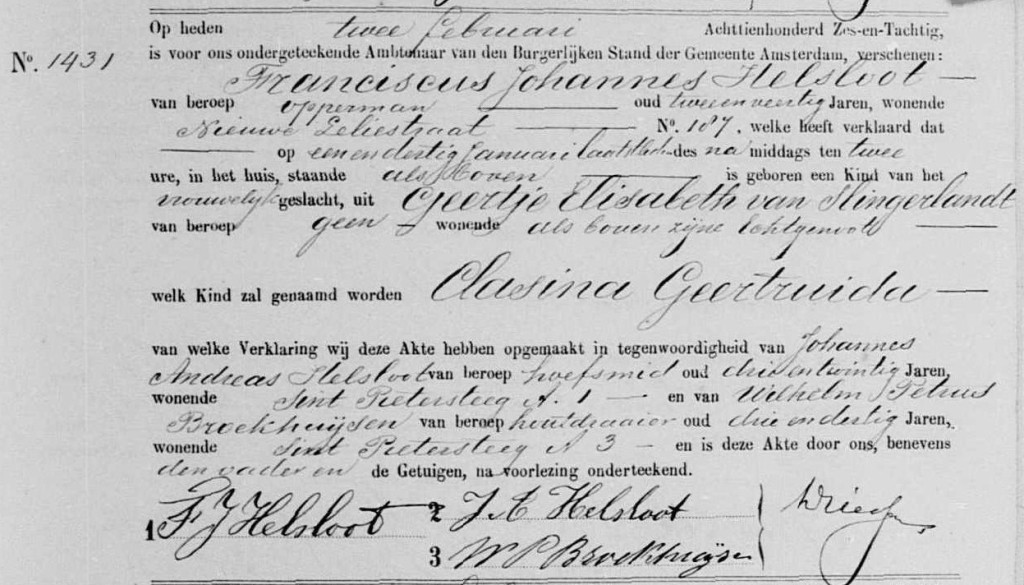 Op heden twee Februari Achttienhonderd Zes-en-Tachtig,
No. 1431 is voor ons ondergeteekende Ambtenaar van den Burgerlijken Stand der Gemeente Amsterdam, verschenen:
Franciscus Johannes Helsloot —
van beroep opperman — oud twee en veertig Jaren, wonende
Nieuwe Leliestraat — No. 187, welke heeft verklaard dat
— op een en dertig Januari laatstleden des na middags ten twee
ure, in het huis, staande als boven — is geboren een Kind van het
vrouwelijk geslacht, uit Geertje Elisabeth van Slingerlandt
van beroep geen — wonende als boven zijne Echtgenoote —
welk Kind zal genaamd worden Clasina Geertruida —
van welke Verklaring wij deze Akte hebben opgemaakt in tegenwoordigheid van Johannes
Andreas Helsloot van beroep hoefsmid oud drie en twintig Jaren,
wonende Sint Pietersteeg N. 1 — en van Wilhelm Petrus
Broekhuijsen van beroep houtdraaier oud drie en dertig Jaren,
wonende Sint Pietersteeg N 3 — en is deze Akte door ons, benevens
den vader en de Getuigen, na voorlezing onderteekend.
1 F J Helsloot 2 J A Helsloot
3 W P Broekhuijsen